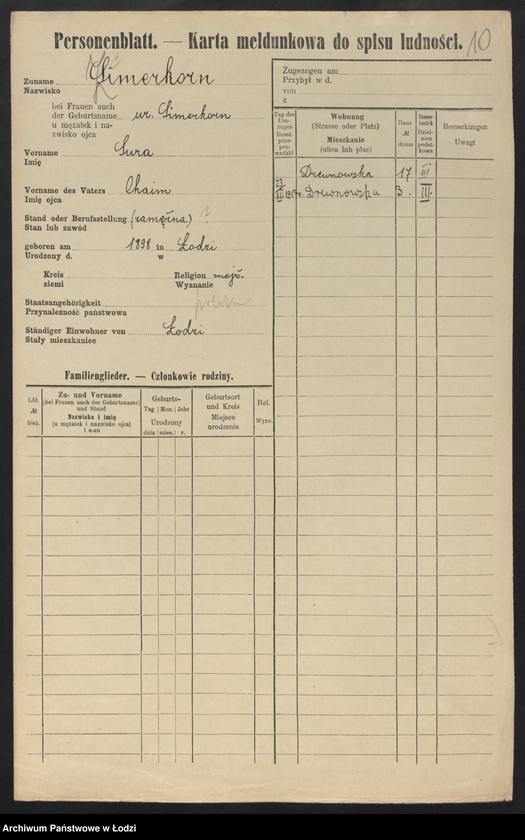 Personenblatt. — Karta meldunkowa do spisu ludności. 10
Zuname
Nazwisko
Simerkorn
bei Frauen auch
der Geburtsname
u mężatek i na-
zwisko ojca
ur. Simerkorn
Vorname Sura
Imię
Vorname des Vaters Chaim
Imię ojca
Stand oder Berufsstellung (zamężna) ?
Stan lub zawód
geboren am 1898 in Łodzi
Urodzony d. w
Kreis
ziemi
Religion mojż.
Wyznanie
Staatsangehörigkeit polska
Przynależność państwowa
Ständiger Einwohner von Łodzi
Stały mieszkaniec
Familienglieder. — Członkowie rodziny.
Lfd.
№
bież.
Zu- und Vorname
(bei Frauen auch der Geburtsname)
und Stand
Nazwisko i imię
(u mężatek i nazwisko ojca)
i stan
Geburts-
Tag | Mon. | Jahr
Urodzony
dnia | mies. | r.
Geburtsort
und Kreis
Miejsce
urodzenia
Rel.
Wyzn.
Zugezogen am
Przybył w d.
von
z
Tag des
Um-
zuges
Dzień
prze-
pro-
wadzki
Wohnung
(Strasse oder Platz)
Mieszkanie
(ulica lub plac)
Haus
№
domu
Steuer-
bezirk
Dziel-
nica
podat-
kowa
Bemerkungen
Uwagi
Drewnowska 17 III
Drewnowska 3. III.
Archiwum Państwowe w Łodzi